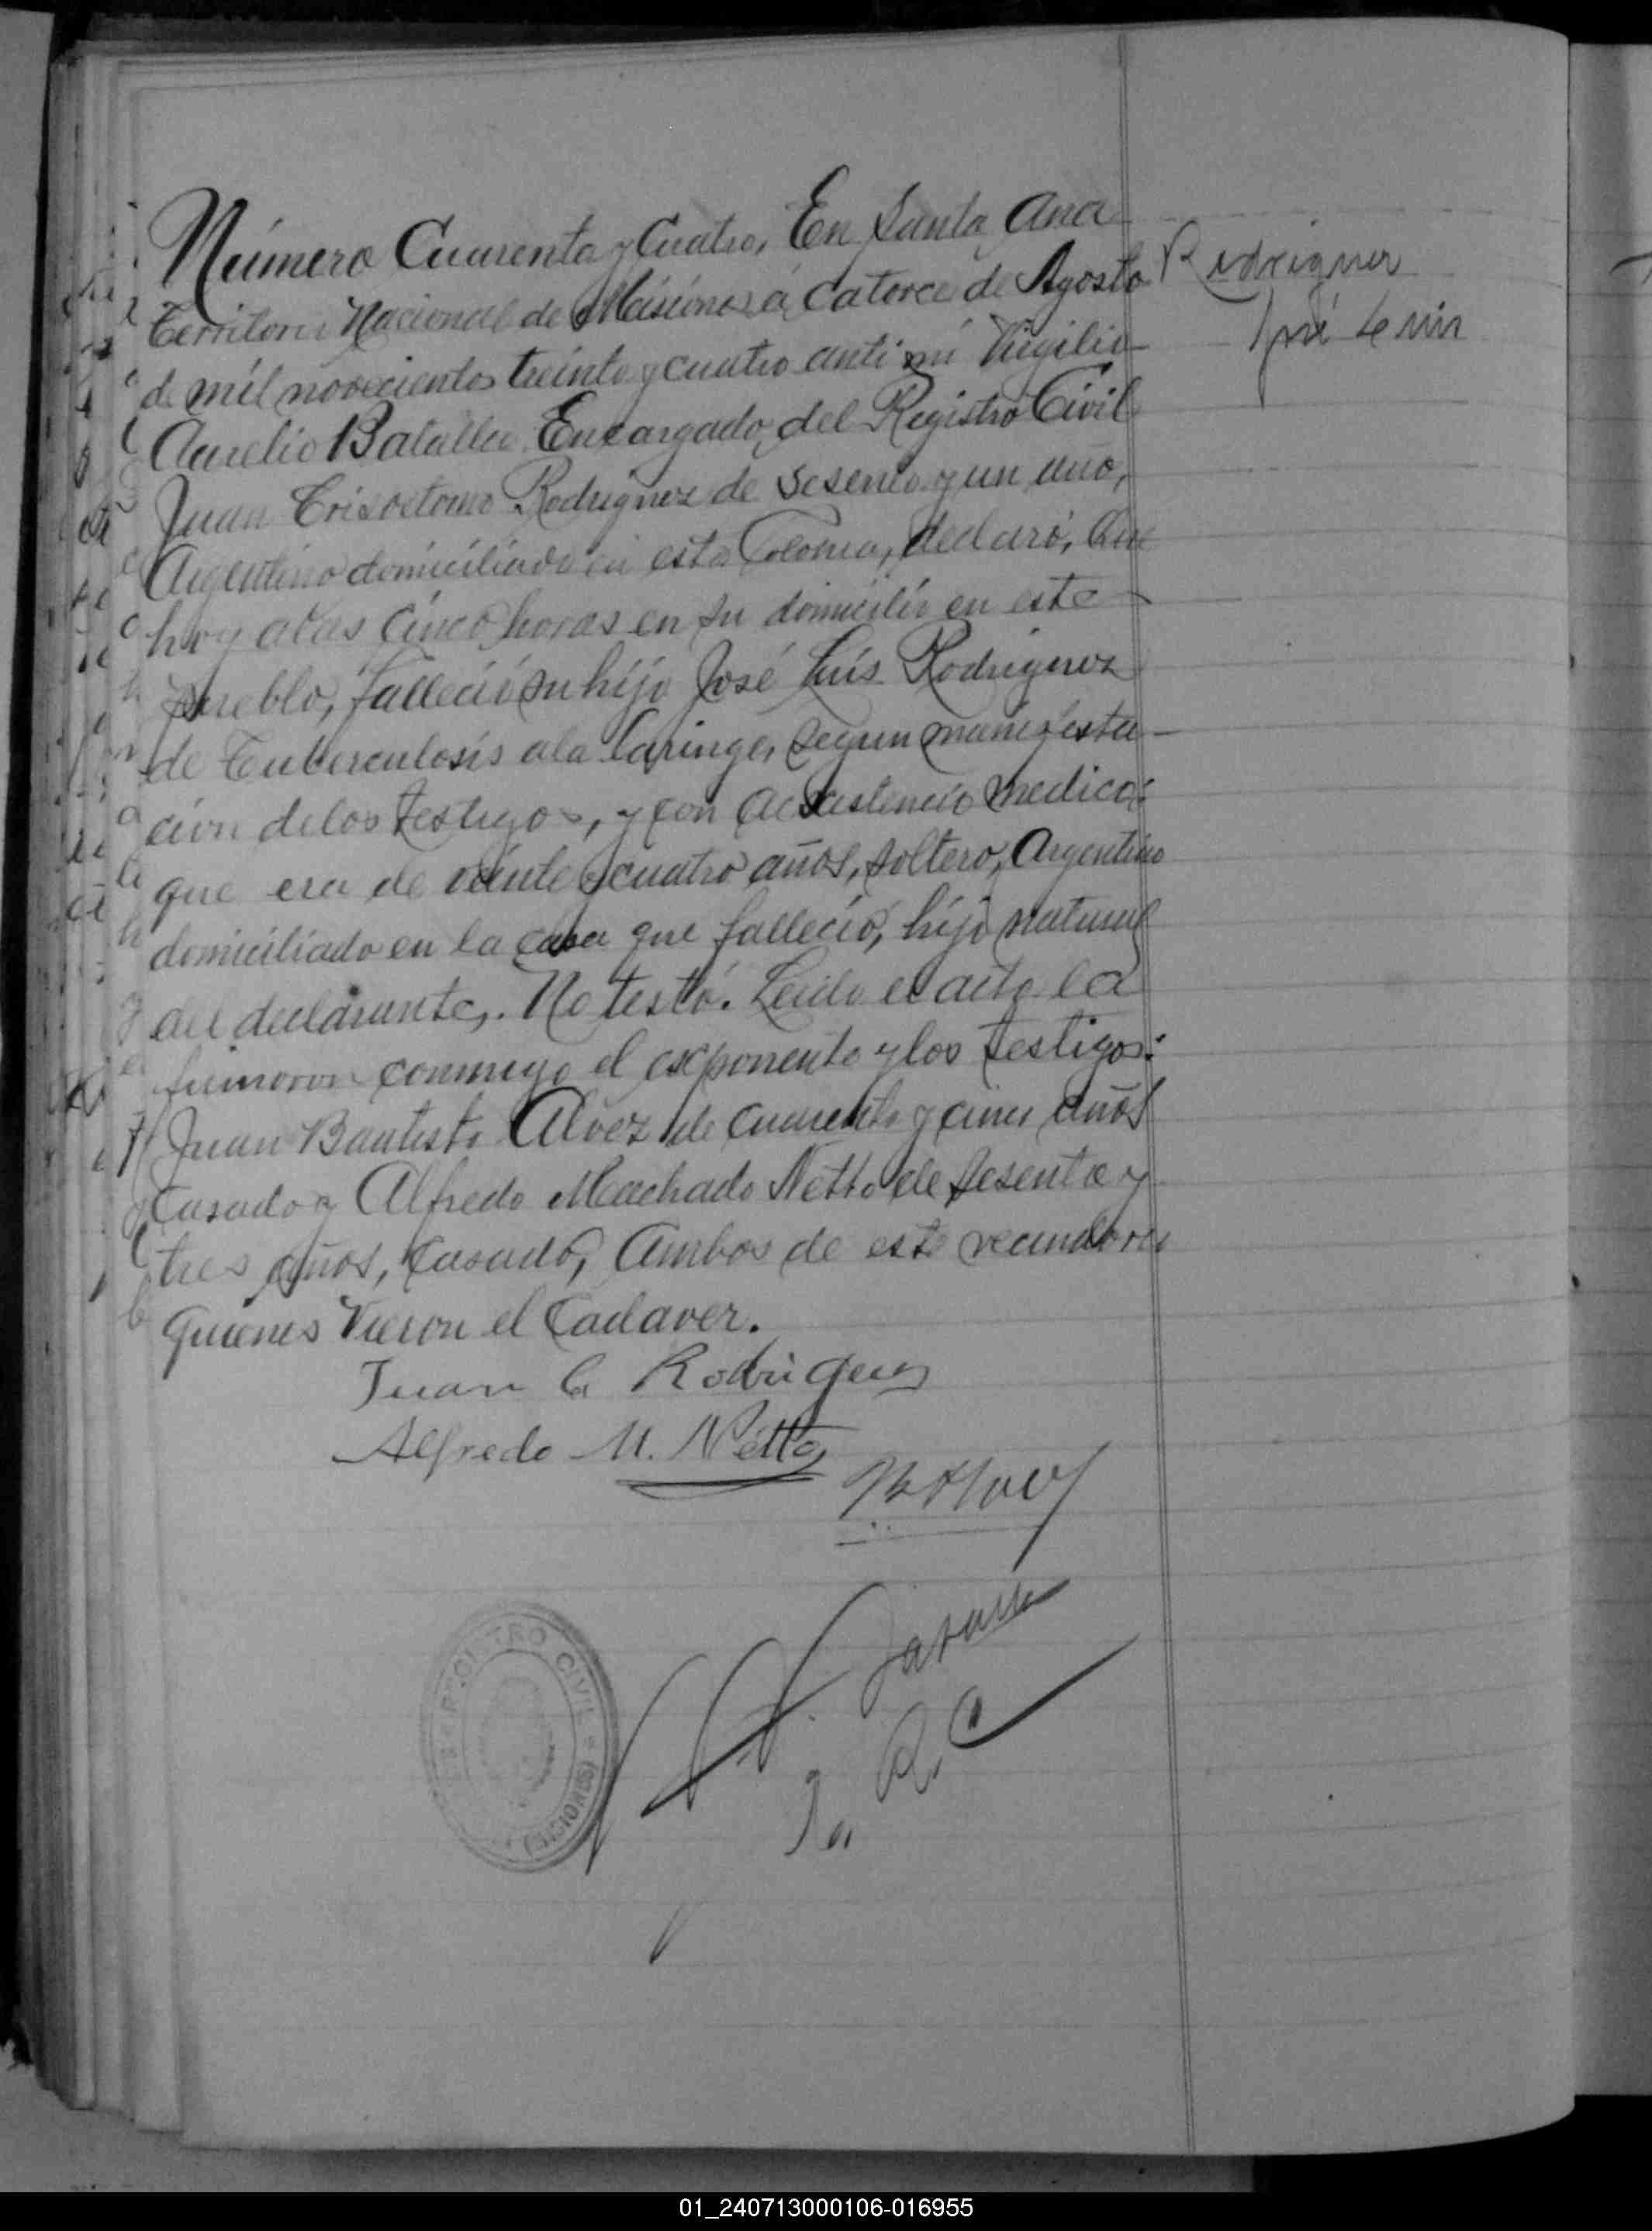 Número Cuarenta y Cuatro, En Santa Ana
Territorio Nacional de Misiones á catorce de Agosto
de mil novecientos treinta y cuatro ante mí Virgilio
Aurelio Batalla Encargado del Registro Civil
Juan Crisostomo Rodriguez de Sesenta y un año,
Argentino domiciliado en esta Colonia, declaró, Que
hoy alas Cinco horas en su domicilio en este
Pueblo, falleció su hijo José Luis Rodriguez
de Tuberculosis ala laringe, segun manifesta-
ción delos testigos, y con medica:
que era de veinte y cuatro años, soltero, Argentino
domiciliado en la casa que falleció, hijo natural
del declarante,. No testó. Leido el acta la
firmaron conmigo el exponente y los testigos:
Juan Bautista Alvez de cuarenta y cinco años
Casado y Alfredo Machado Netto de sesenta y
tres años, Casado, Ambos de este
quienes Vieron el Cadaver.
Juan C Rodriguez
Alfredo M. Netto
Rodriguez
José Luis
REGISTRO CIVIL
(MISIONES)
01_240713000106-016955